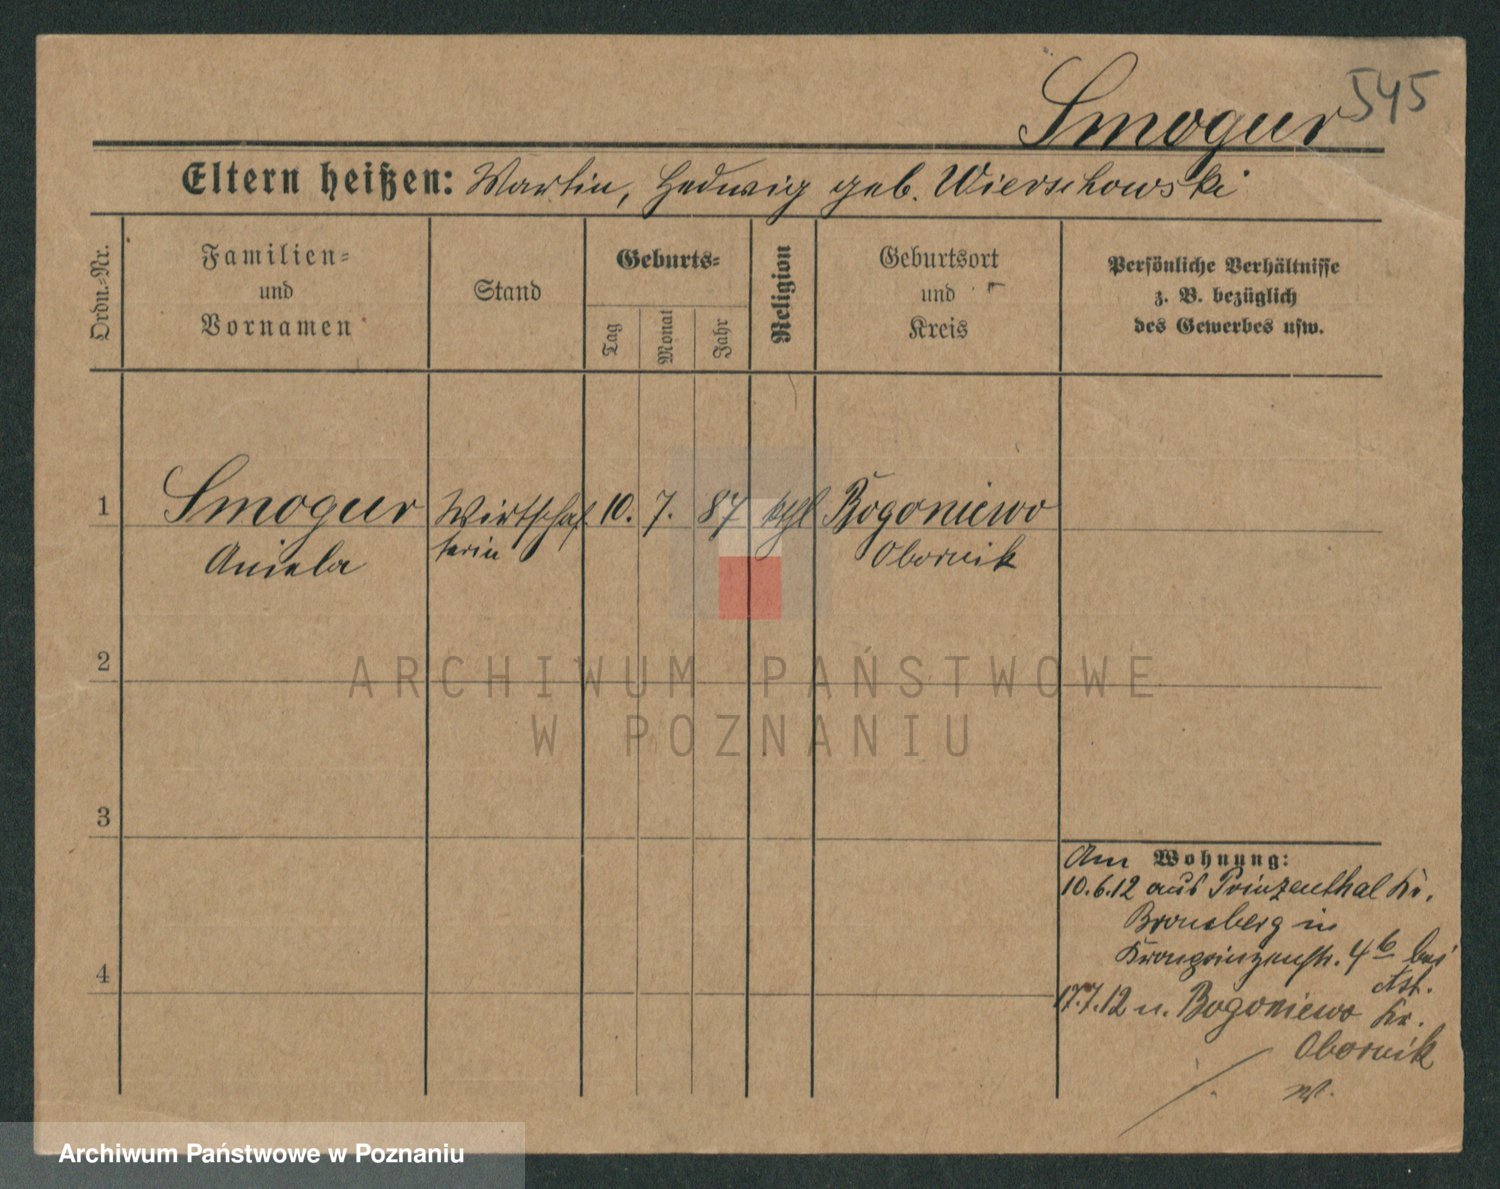 Smogur 545
Eltern heißen: Martin, Hedwig geb. Wierschowski
Ordn.-Nr.
Familien-
und
Vornamen
Stand
Geburts-
Tag
Monat
Jahr
Religion
Geburtsort
und
Kreis
Persönliche Verhältnisse
z. B. bezüglich
des Gewerbes usw.
1 Smogur Wirtschaf 10. 7. 87 kthl Bogoniewo
Aniela terin Obornik
2
ARCHIWUM PAŃSTWOWE
W POZNANIU
3
4
Am Wohnung:
10.6.12 aus Prinzenthal Kr.
Bromberg in
Kronprinzenstr. 4b bei
17.7.12 n. Bogoniewo Kr.
Obornik
Archiwum Państwowe w Poznaniu